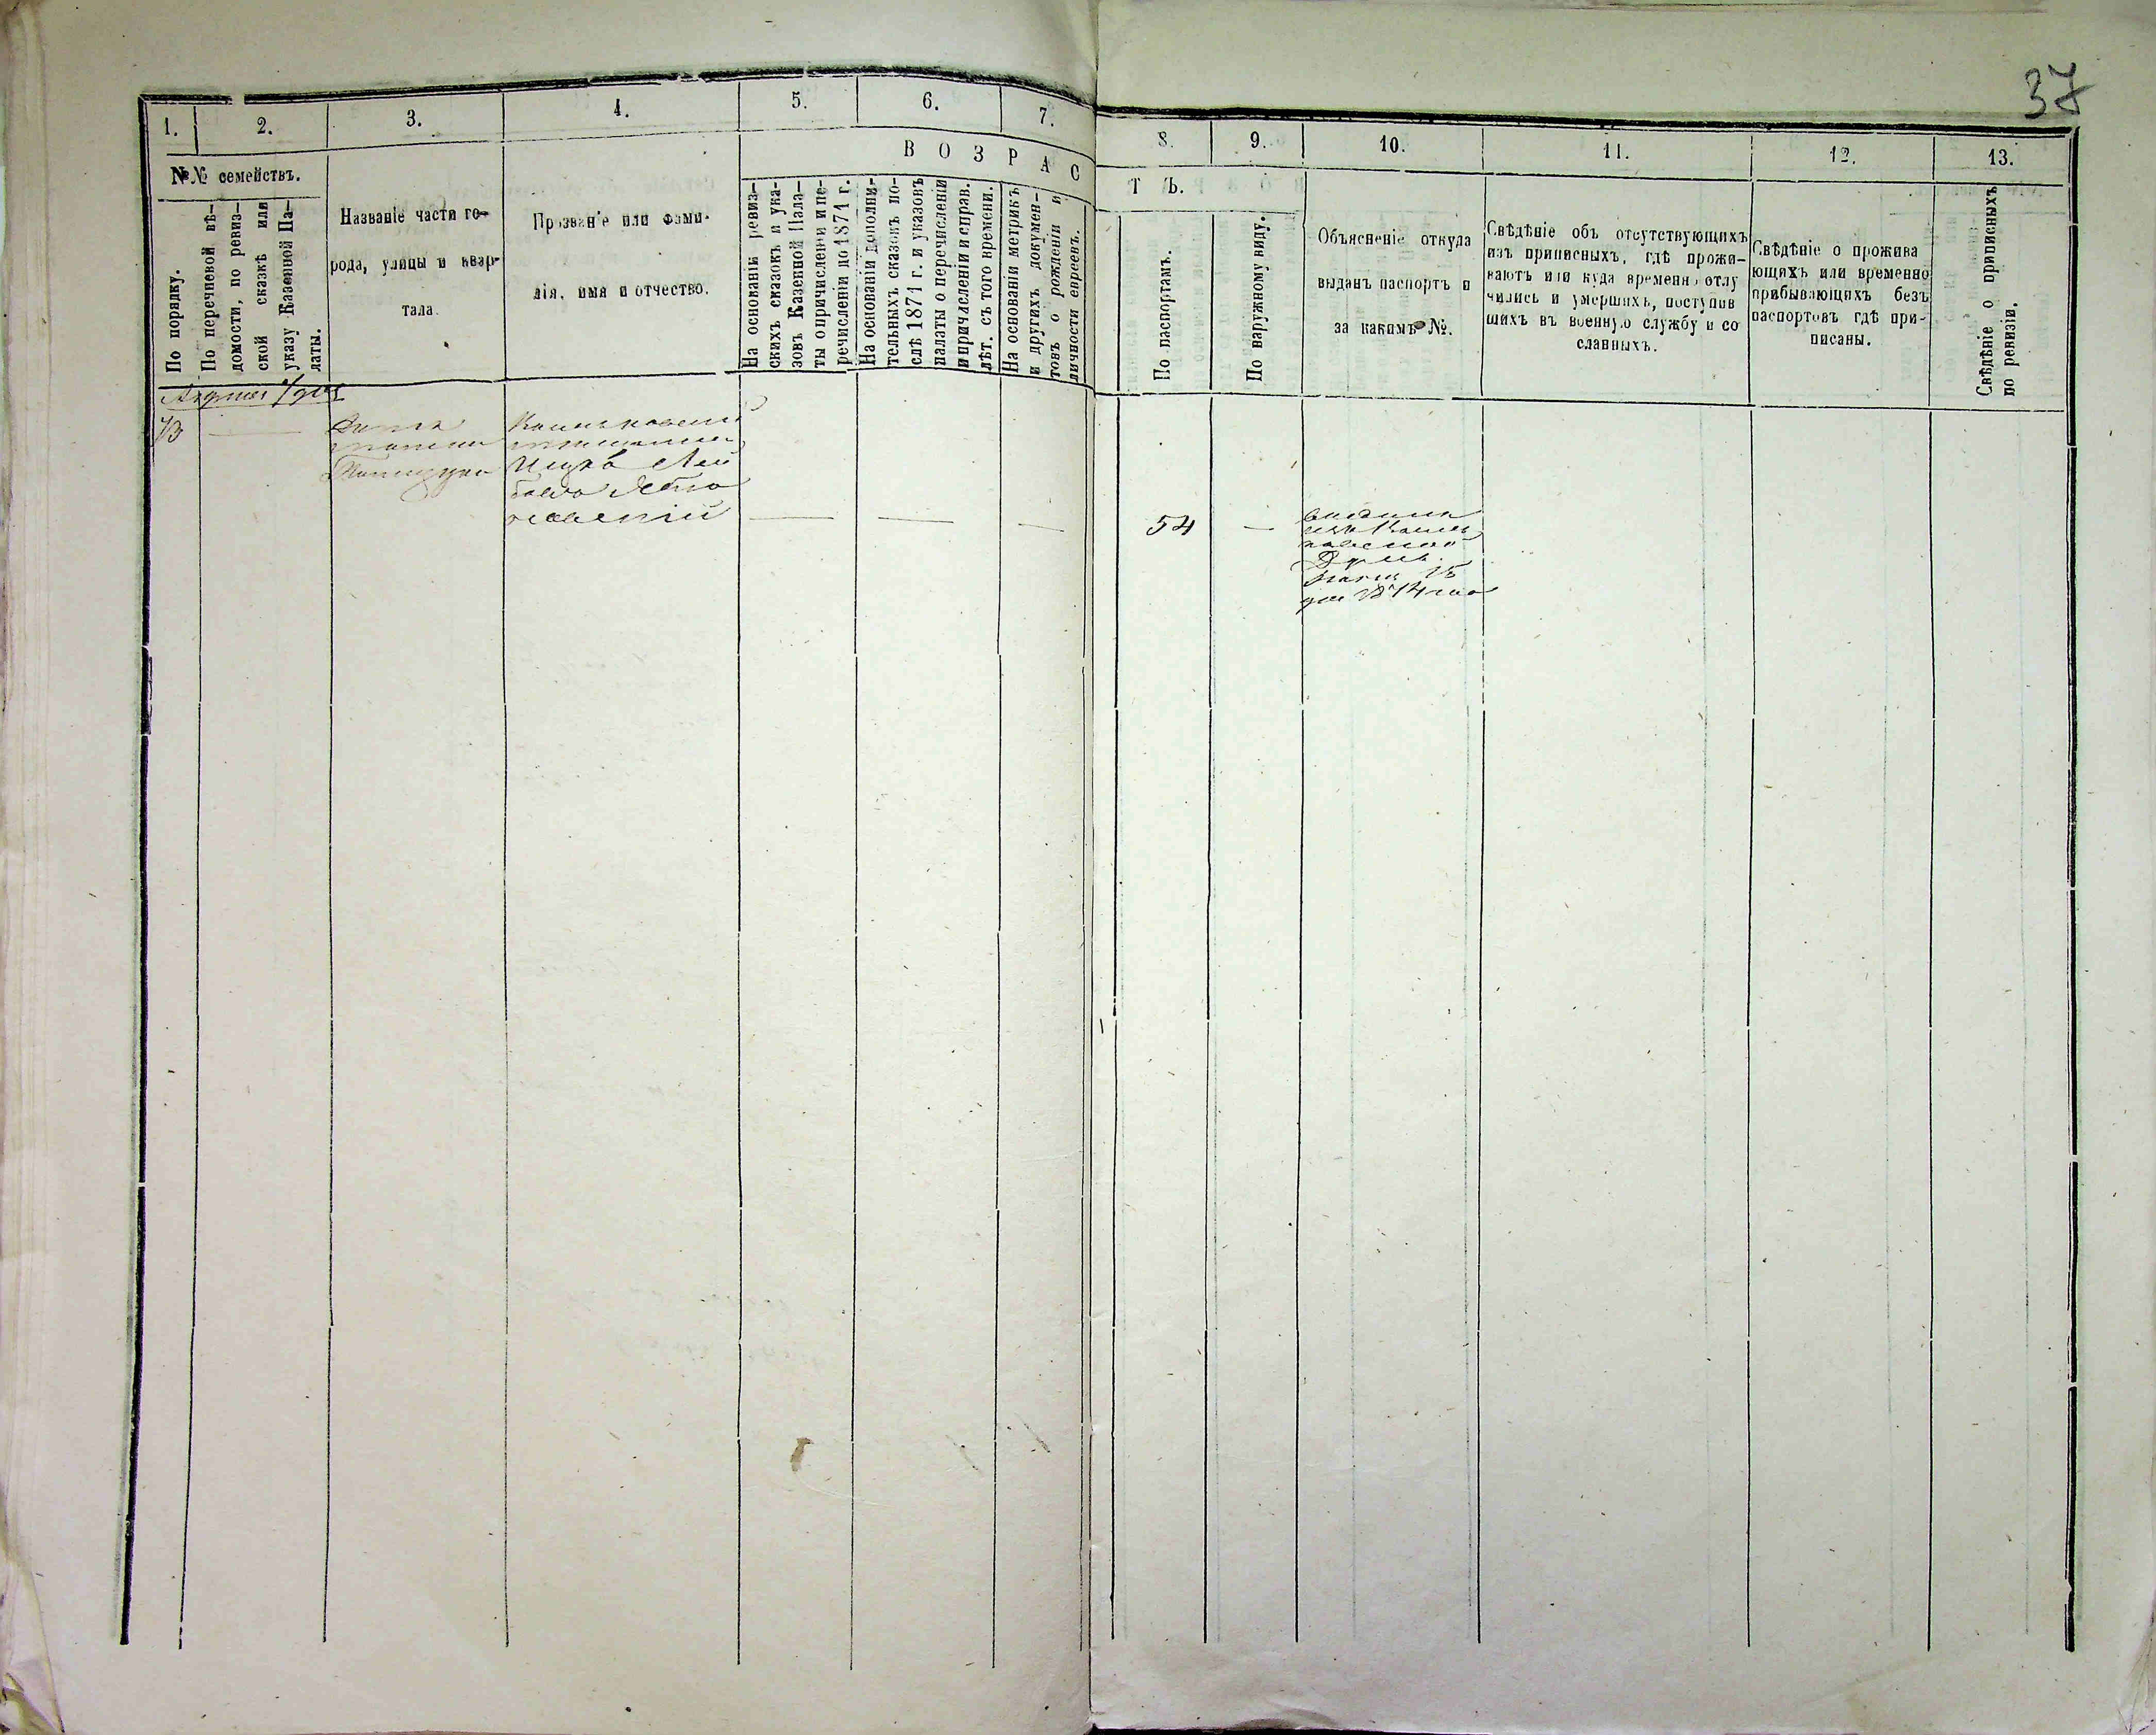 37
1.
2.
3.
4.
5.
6.
7.
8.
9.
10.
11.
12.
13.
№№ семействъ.
По порядку.
По перечневой вѣ-
домости, по ревиз-
ской сказкѣ или
указу Казенной Па-
латы.
Названіе части го-
рода, улицы и квар-
тала.
Прозваніе или фами-
лія, имя и отчество.
ВОЗРАС
ТЪ.
На основаніи ревиз-
скихъ сказокъ и ука-
зовъ Казенной Пала-
ты о причисленіи и пе-
речисленіи по 1871 г.
На основаніи дополни-
тельныхъ сказокъ по-
слѣ 1871 г. и указовъ
палаты о перечисленіи
и причисленіи и справ.
лѣт. съ того времени.
На основаніи метрикъ
и другихъ докумен-
товъ о рожденіи и
личности евреевъ.
По паспортамъ.
По наружному виду.
Объясненіе откуда
выданъ паспортъ и
за какимъ №.
Свѣдѣніе объ отсутствующихъ
изъ приписныхъ, гдѣ прожи-
ваютъ или куда временно отлу
чились и умершихъ, поступив
шихъ въ военную службу и со
сланныхъ.
Свѣдѣніе о прожива
ющихъ или временно
прибывающихъ безъ
паспортовъ гдѣ при-
писаны.
Свѣдѣніе о приписныхъ
по ревизіи.
73
Ицко Лей
54